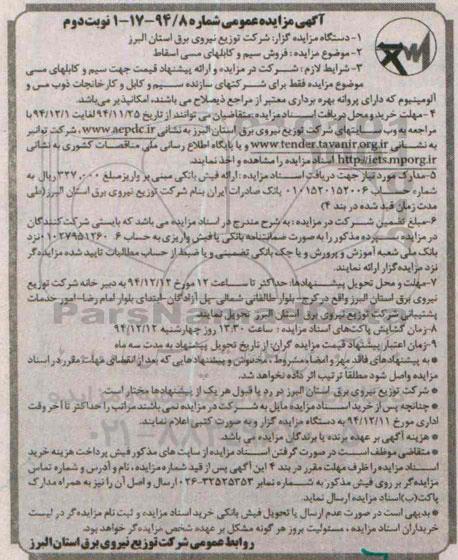 آگهی مزایده عمومی شماره ۹۴/۸-۱۷-۱ نوبت دوم
۱- دستگاه مزایده گزار: شرکت توزیع نیروی برق استان البرز
۲- موضوع مزایده: فروش سیم و کابلهای مسی اسقاط
۳- شرایط لازم: شرکت در مزایده و ارائه پیشنهاد قیمت جهت سیم و کابلهای مسی
موضوع مزایده فقط برای شرکتهای سازنده سیم و کابل و کارخانجات ذوب مس و
آلومینیوم که دارای پروانه بهره برداری معتبر از مراجع ذیصلاح می باشند، امکانپذیر می‌باشد.
۴- مهلت خرید و محل دریافت اسناد مزایده: متقاضیان می توانند از تاریخ ۹۴/۱۱/۲۵ لغایت ۹۴/۱۲/۱ با
مراجعه به وب سایتهای شرکت توزیع نیروی برق استان البرز به نشانی www.aepdc.ir، شرکت توانیر
به نشانی www.tender.tavanir.org.ir و یا پایگاه اطلاع رسانی ملی مناقصات کشوری به نشانی
http://iets.mporg.ir اسناد مزایده را مشاهده و اخذ نمایند.
۵- مدارک مورد نیاز جهت دریافت اسناد مزایده: ارائه فیش بانکی مبنی بر واریز مبلغ ۳۲۷,۰۰۰ ریال به
شماره حساب ۰۱۰۱۵۲۰۱۵۲۰۰۶ بانک صادرات ایران بنام شرکت توزیع نیروی برق استان البرز (طی
مدت زمان قید شده در بند ۴)
۶- مبلغ تضمین شرکت در مزایده: به شرح مندرج در اسناد مزایده می باشد که بایستی شرکت کنندگان
در مزایده سپرده مذکور را به صورت ضمانتنامه بانکی یا فیش واریزی به حساب ۰۱۰۲۷۹۵۱۲۶۰۰۶ نزد
بانک ملی شعبه آموزش و پرورش و یا چک بانکی تضمینی و یا ضبط از حساب مطالبات تایید شده مزایده گر
نزد مزایده گزار ارائه نمایند.
۷- مهلت و محل تحویل پیشنهادها: حداکثر تا ساعت ۱۲ مورخ ۹۴/۱۲/۱۲ به دبیر خانه شرکت توزیع
نیروی برق استان البرز واقع در کرج- بلوار طالقانی شمالی- پل آزادگان- ابتدای بلوار امام رضا- امور خدمات
پشتیبانی شرکت توزیع نیروی برق استان البرز تحویل نمایند.
۸- زمان گشایش پاکت‌های اسناد مزایده: ساعت ۱۳:۳۰ روز چهارشنبه ۹۴/۱۲/۱۲
۹- زمان اعتبار پیشنهاد قیمت مزایده گران: از تاریخ تحویل پیشنهاد به مدت سه ماه
* به پیشنهادهای فاقد مهر و امضاء، مشروط، مخدوش و پیشنهادهایی که بعد از انقضای مهلت مقرر در اسناد
مزایده واصل شود مطلقاً ترتیب اثر داده نخواهد شد.
* شرکت توزیع نیروی برق استان البرز در رد یا قبول هر یک از پیشنهادها مختار است
* چنانچه پس از خرید اسناد مزایده مایل به شرکت در مزایده نمی باشند مراتب را حداکثر تا آخر وقت
اداری مورخ ۹۴/۱۲/۱۱ به دستگاه مزایده گزار و به صورت کتبی اعلام نمایند.
* هزینه آگهی بر عهده برنده یا برندگان مزایده می باشد
* متقاضی موظف است در صورت گرفتن اسناد مزایده از سایت های مذکور فیش پرداخت هزینه خرید
اسناد مزایده را ظرف مهلت مقرر در بند ۴ این آگهی پس از قید شماره مزایده، نام و آدرس و شماره تماس
مزایده گر بر روی فیش مذکور به شماره نمابر ۳۲۵۲۵۳۵۳-۰۲۶ ارسال و اصل آن را نیز به همراه مدارک
پاکت (ب) اسناد مزایده ارسال نماید.
* بدیهی است در صورت عدم ارسال یا تحویل فیش بانکی خرید اسناد مزایده و ثبت نام مزایده گر در لیست
خریداران اسناد مزایده، مسئولیت بروز هر گونه مشکل بر عهده شخص مزایده گر خواهد بود.
روابط عمومی شرکت توزیع نیروی برق استان البرز